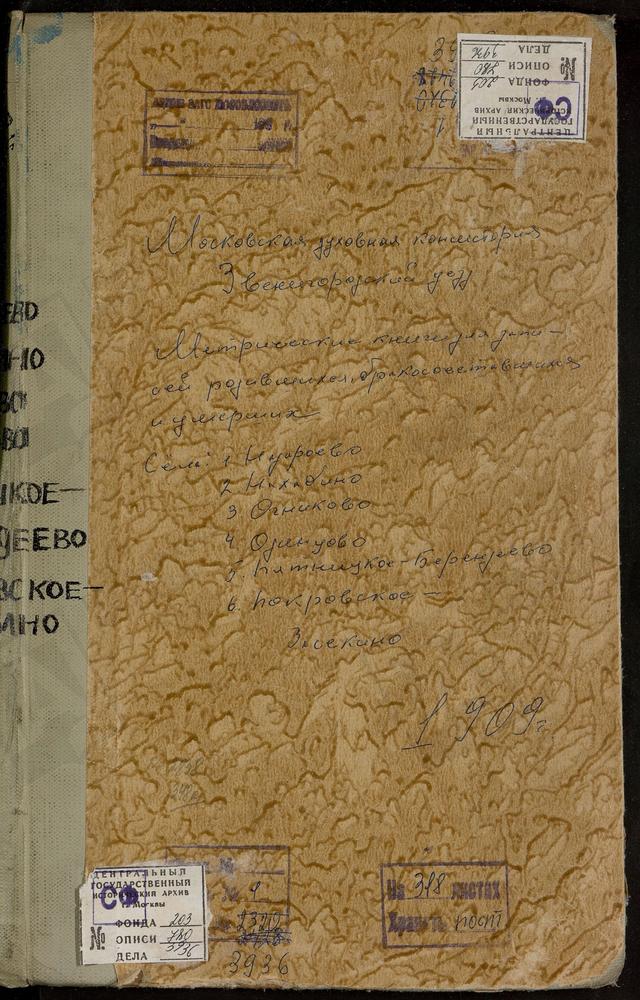 ЦЕНТРАЛЬНЫЙ
ГОСУДАРСТВЕННЫЙ
ИСТОРИЧЕСКИЙ АРХИВ
г. Москвы
СФ
ФОНДА 203
№ ОПИСИ 780
ДЕЛА 3936
Московская духовная консистория
Звенигородский уезд
Метрические книги для запи-
сей родившихся, бракосочетавшихся
и умерших
Села: 1 Нугроево
2 Нахабино
3 Огниково
4. Одинцово
5. Пятницкое-Берендеево
6. Покровское —
Засекино
1909г.
ЕВО
НО
ВО
ВО
ЦКОЕ—
ДЕЕВО
ВСКОЕ—
ИНО
ЦЕНТРАЛЬНЫЙ
ГОСУДАРСТВЕННЫЙ
ИСТОРИЧЕСКИЙ АРХИВ
г. Москвы
СФ
ФОНДА 203
№ ОПИСИ 780
ДЕЛА 3936
№ 1
3936
На 318 листах
Хранить пост